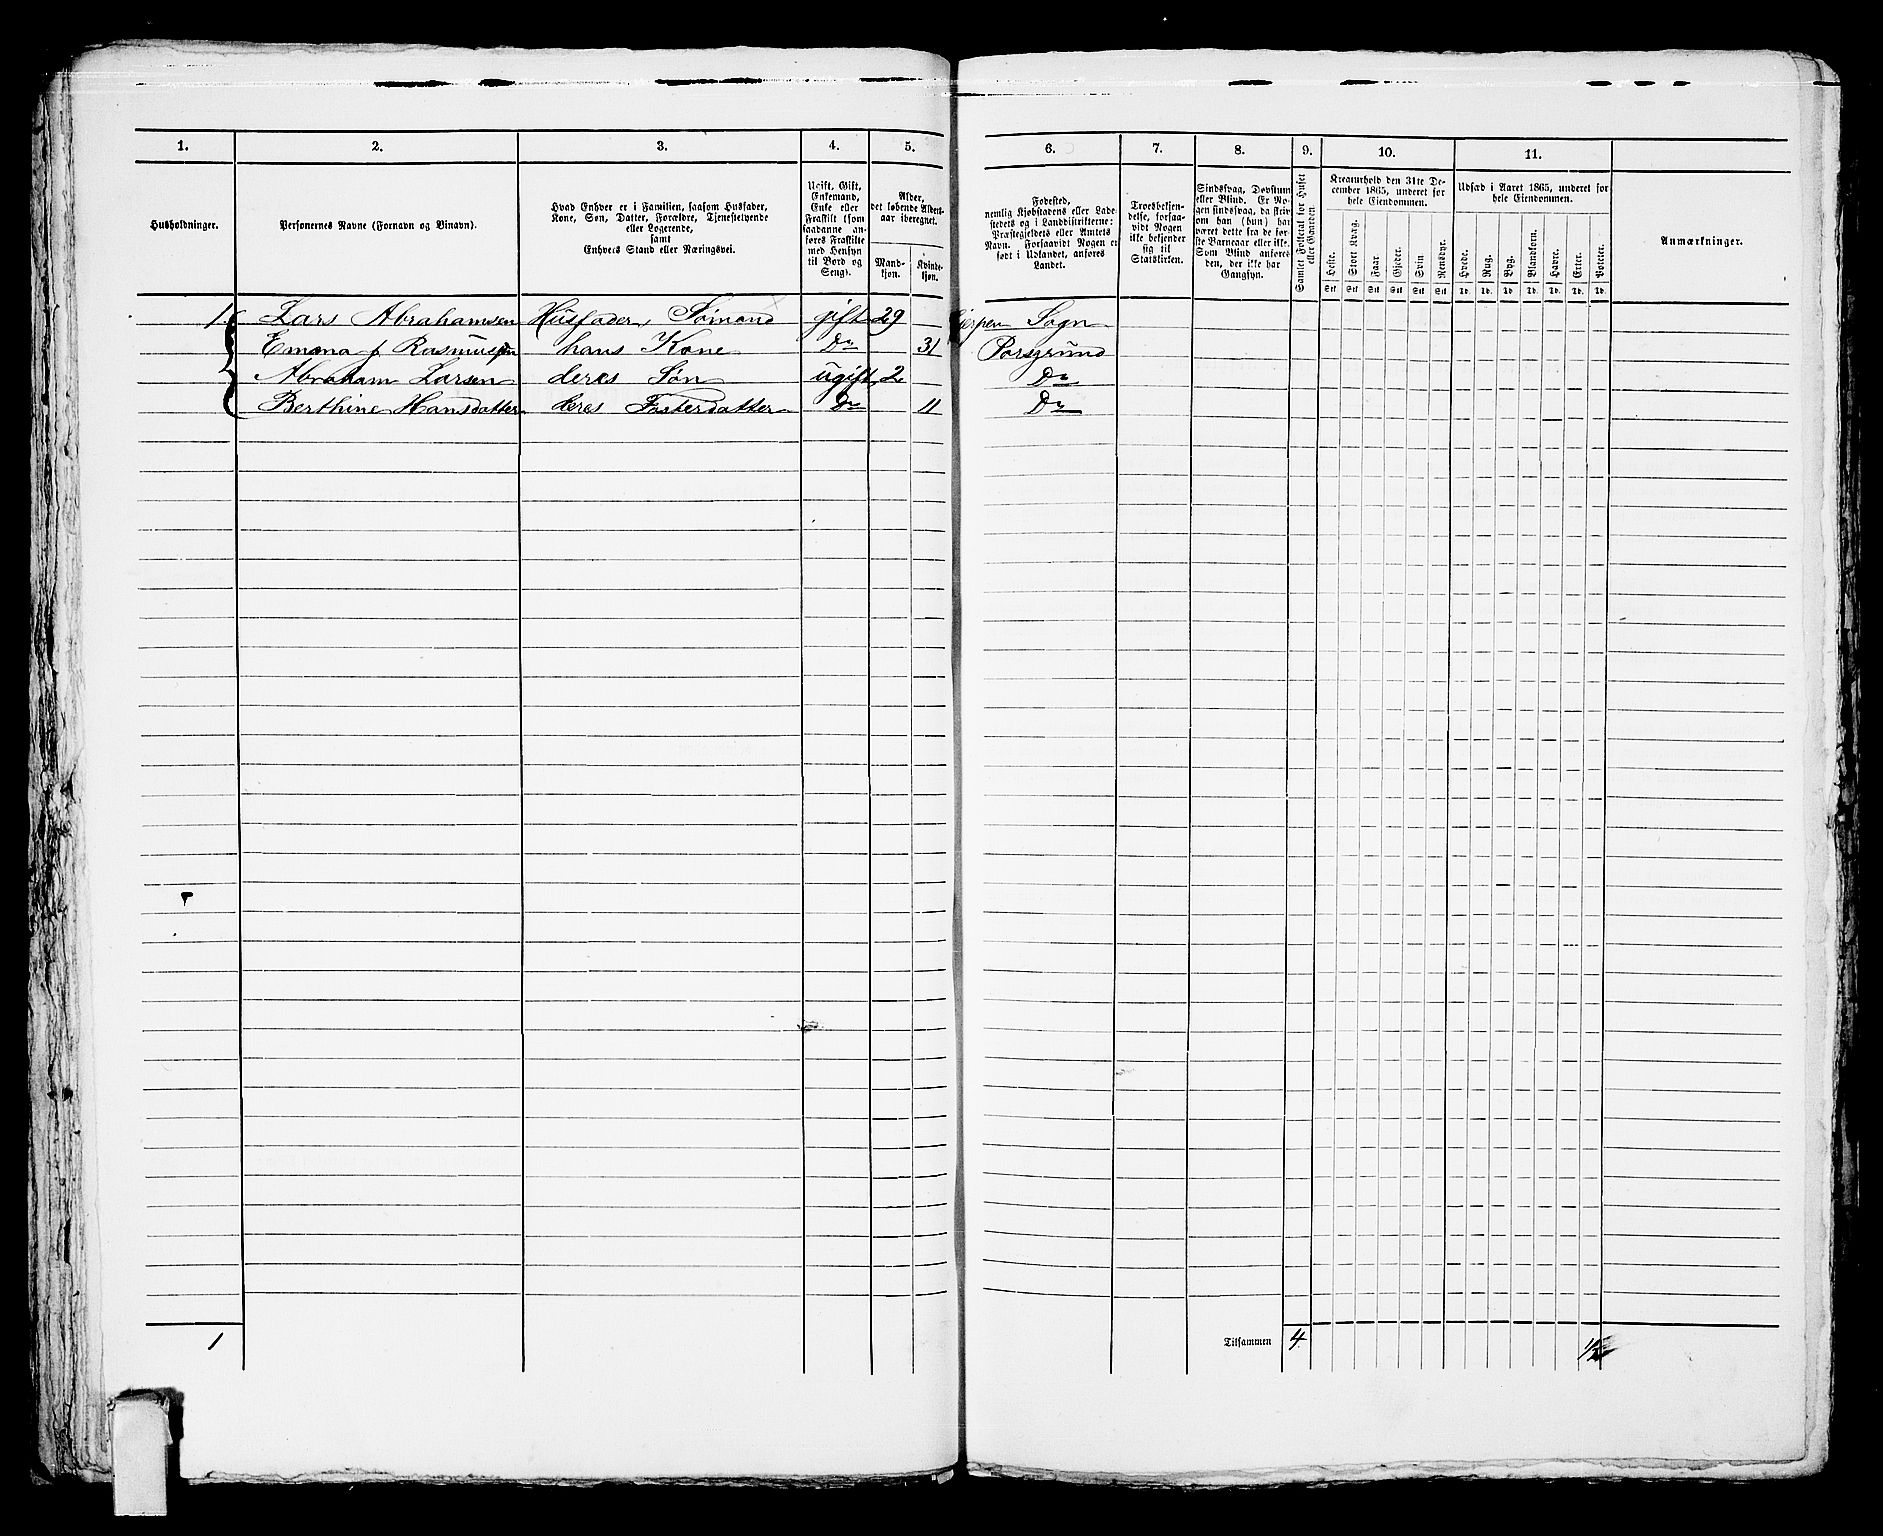 1. 2. 3. 4. 5. 6. 7. 8. 9. 10. 11.
Husholdninger.
Personernes Navne (Fornavn og Binavn).
Hvad Enhver er i Familien, saasom Husfader,
Kone, Søn, Datter, Forældre, Tjenestetyende
eller Logerende,
samt
Enhvers Stand eller Næringsvei.
Ugift, Gift,
Enkemand,
Enke eller
Fraskilt (som
saadanne an-
føres Fraskilte
med Hensyn
til Bord og
Seng).
Alder,
det løbende Alders-
aar iberegnet.
Mand-
kjøn.
Kvinde-
kjøn.
Fødested,
nemlig Kjøbstadens eller Lade-
stedets og i Landdistrikterne:
Præstegjeldets eller Amtets
Navn. Forsaavidt Nogen er
født i Udlandet, anføres
Landet.
Troesbekjen-
delse, forsaa-
vidt Nogen
ikke bekjender
sig til
Statskirken.
Sindssvag, Døvstum
eller Blind. Er No-
gen sindssvag, da skri-
ves om han (hun) har
været dette fra de før-
ste Barneaar eller ikke.
Som Blind anføres
den, der ikke har
Gangsyn.
Samlet Folketal for Huset
eller Gaarden.
Kreaturhold den 31te De-
cember 1865, underet for
hele Eiendommen.
Heste.
Stort Kvæg.
Faar.
Gjeder.
Svin
Rensdyr.
Stk Stk Stk Stk Stk Stk
Udsæd i Aaret 1865, underet for
hele Eiendommen.
Hvede.
Rug.
Byg.
Blandkorn.
Havre.
Erter.
Poteter.
Td. Td. Td. Td. Td. Td. Td.
Anmærkninger.
1. Lars Abrahamsen Husfader, Sømand gift 29 Gjerpen Sogn
Emma f. Rasmussen hans Kone Do 31 Porsgrund
Abraham Larsen deres Søn ugift 2 Do
Berthine Hansdatter deres Fosterdatter Do 11 Do
1 Tilsammen 4